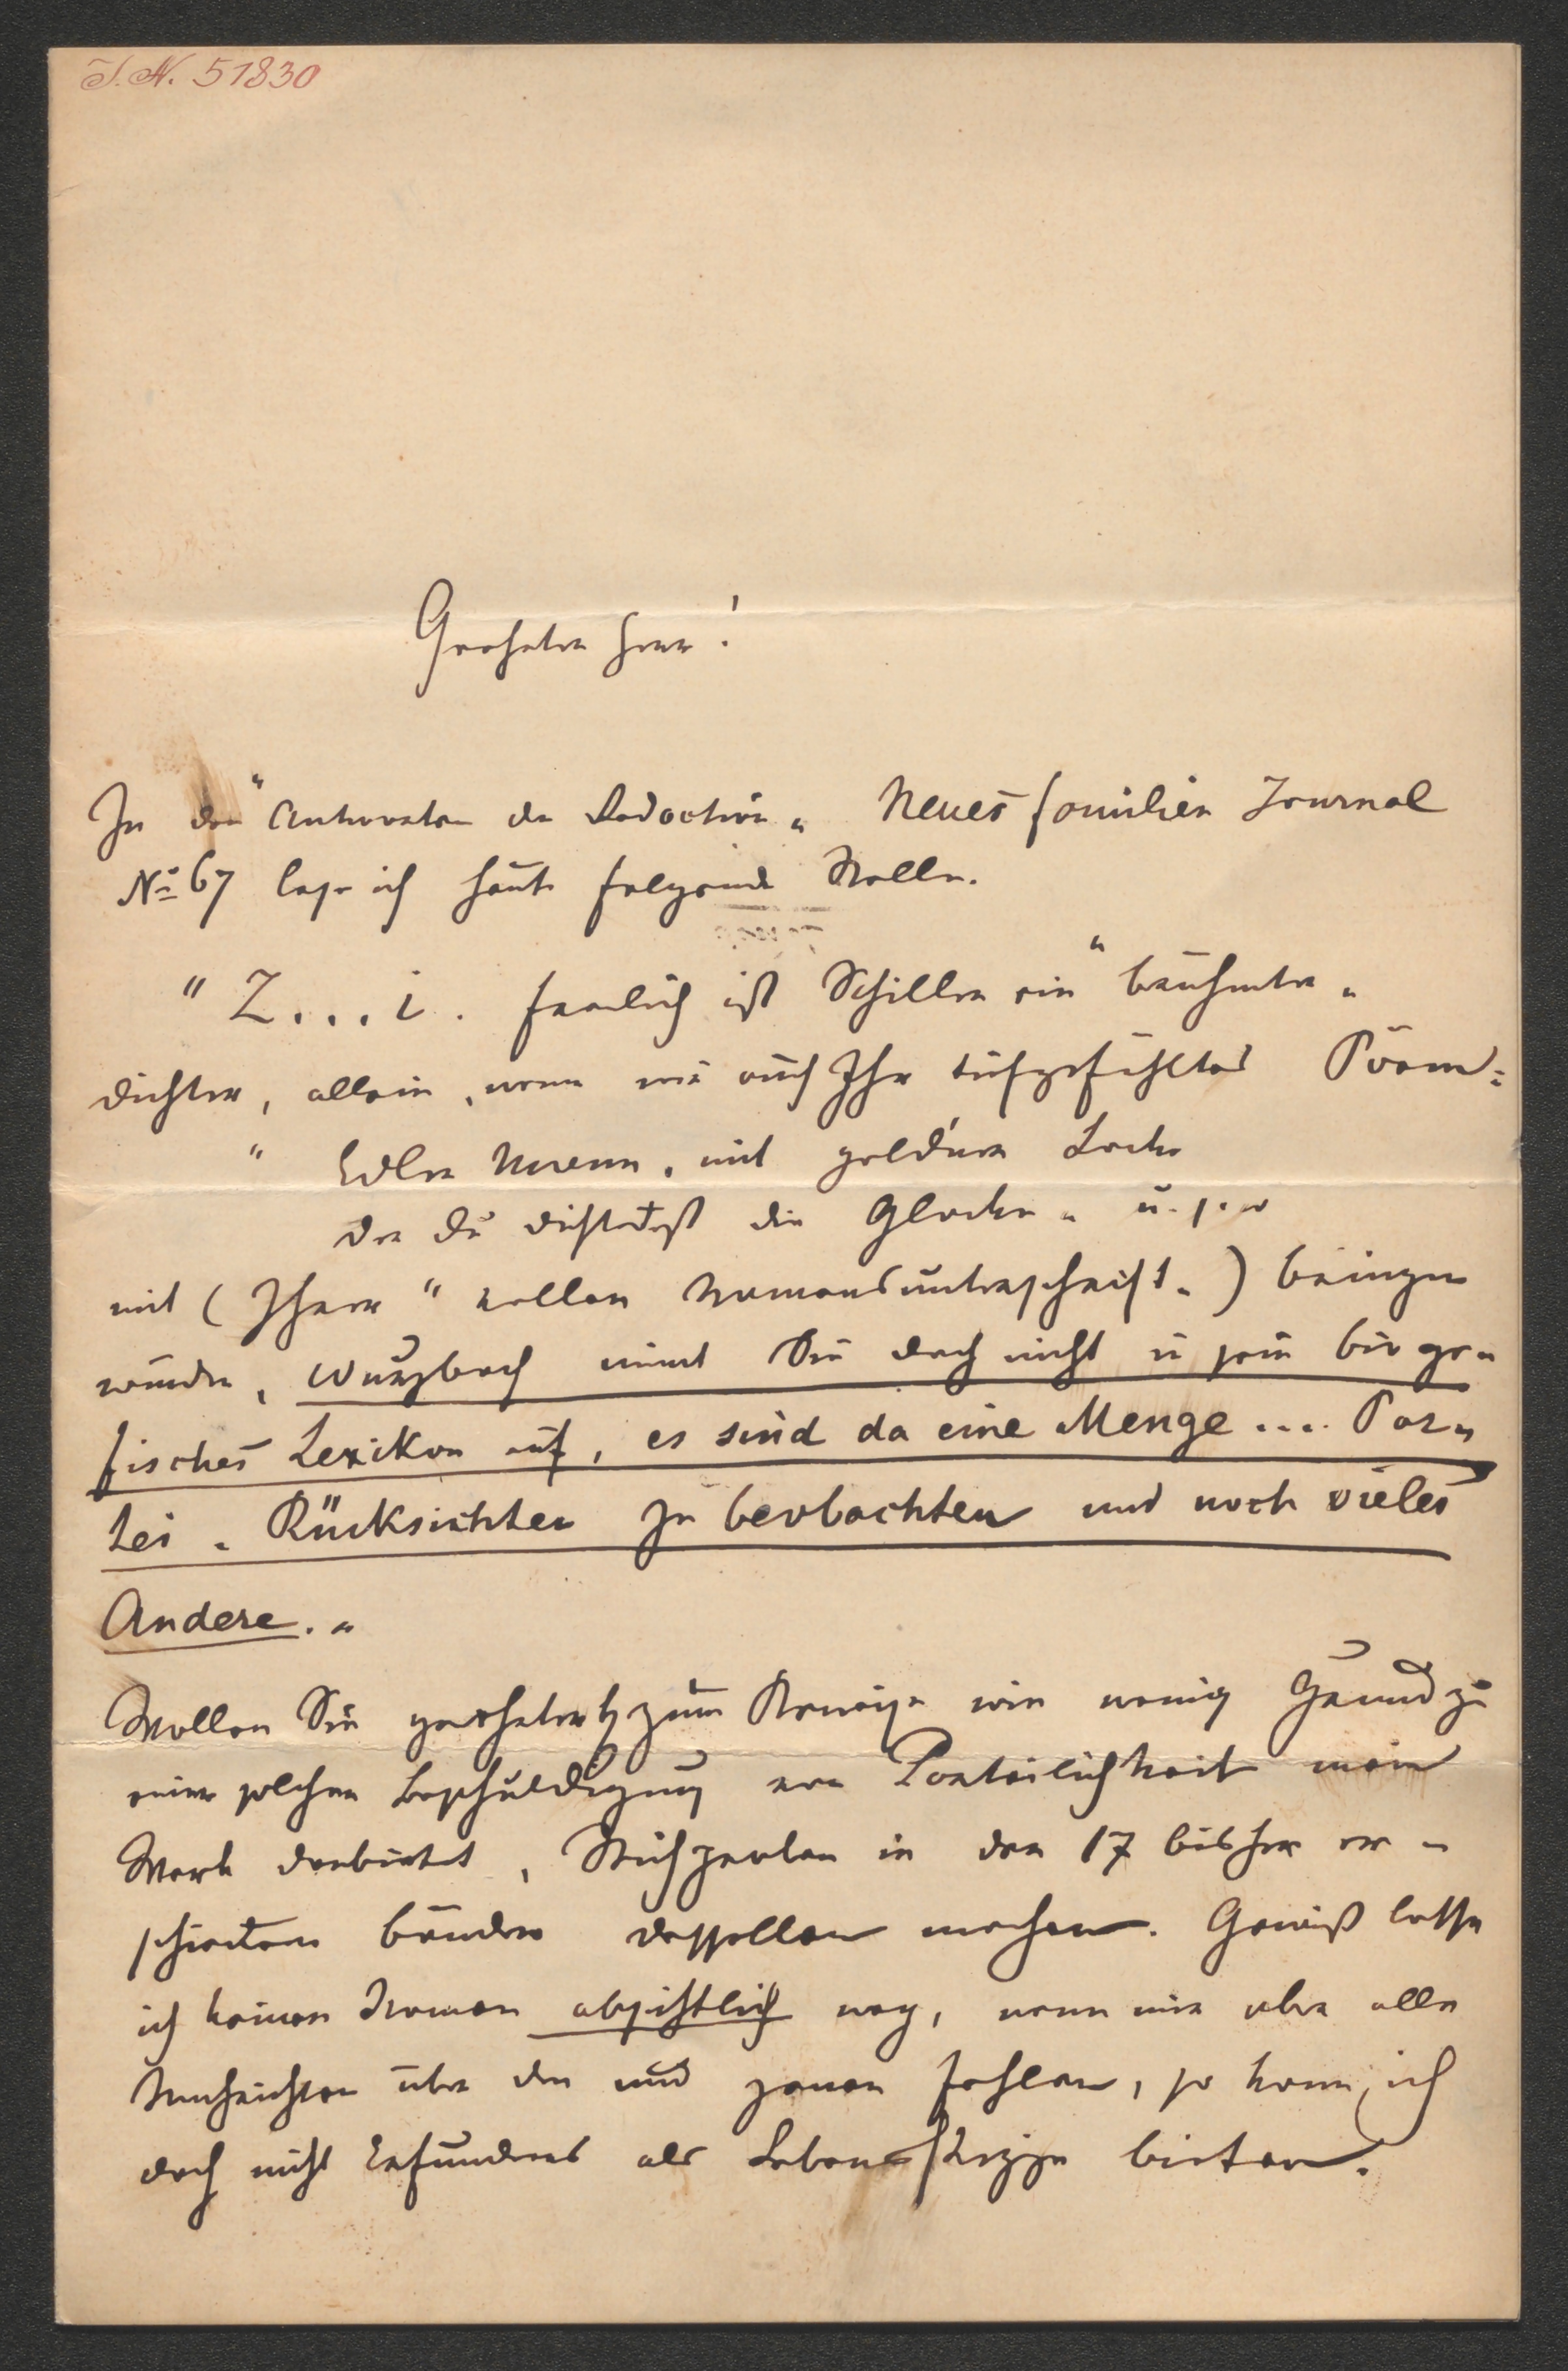 I. N. 51830
Geehrter Herr!
In den "Antworten der Redaction" Neues familien Journal
No 67 lese ich heute folgende Stelle.
"Z...i. freilich ist Schiller ein "berühmter"
dichter, allein, wenn wir auch Ihr tiefgefühltes Poem:
" Edler Mann, mit gold'ner Locke
der du dichtetest die Glocke" u. s. w
mit (Ihrer "vollen Namensunterschrift") bringen
würden, Wurzbach nimt Sie doch nicht in sein biogra"
fisches Lexikon auf, es sind da eine Menge .... Par"
tei - Rücksichten zu beobachten und noch vieles
Andere."
Wollen Sie geehrtester zum Beweise wie wenig Grund zu
einer solchen Beschuldigung von Parteilichkeit mein
Werk darbietet, Stichproben in den 17 bisher er-
schienenen Bänden desselben machen. Gewiß lasse
ich keinen Namen absichtlich weg, wenn mir aber alle
Nachrichten über den und jenen fehlen, so kann ich
doch nicht Erfundenes als Lebensskizze bieten.